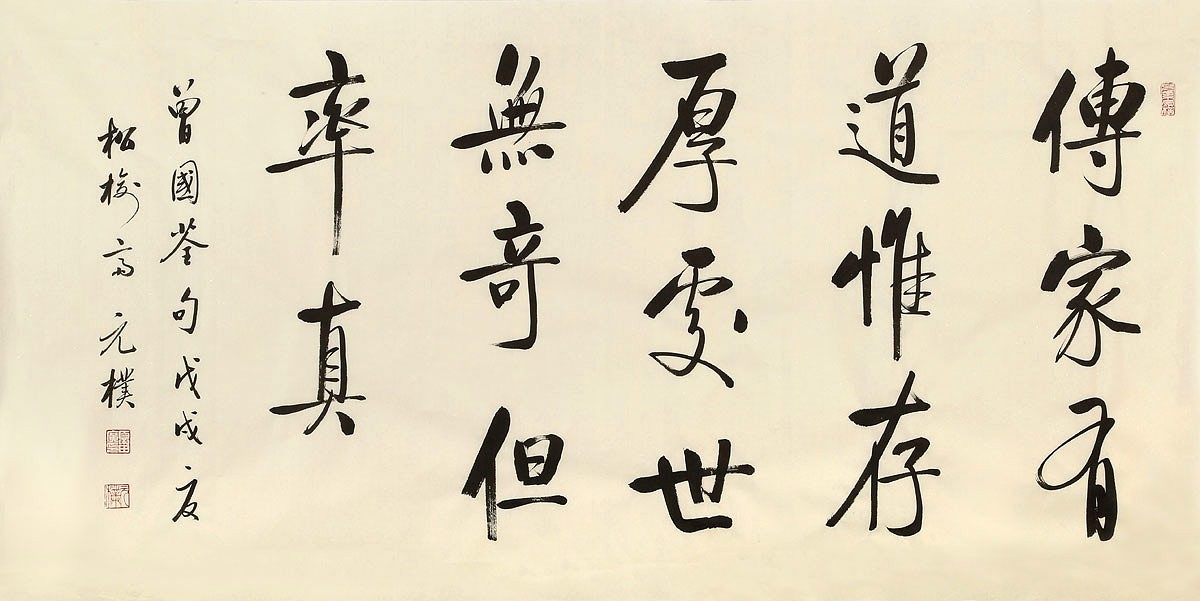 傳家有
道惟存
厚處世
無奇但
率真
曾國荃句戊戌夏
松高元樸